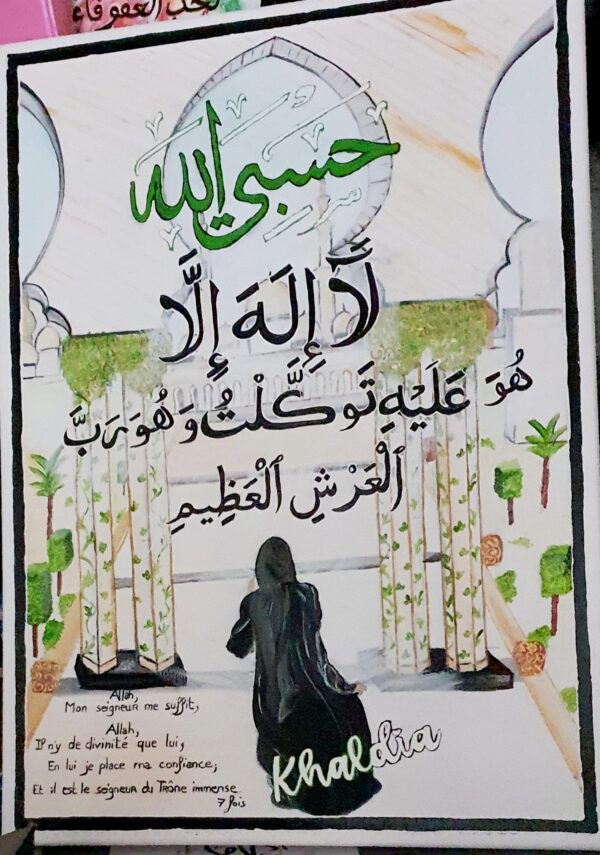 العفو
حَسْبِيَ الله
لَآ إِلَهَ إِلَّا
هُوَ عَلَيْهِ تَوَكَّلْتُ وَهُوَ رَبَّ
ٱلْعَرْشِ ٱلْعَظِيمِ
Allah,
Mon seigneur me suffit,
Allah,
Il n'y de divinité que lui,
En lui je place ma confiance,
Et il est le seigneur du Trône immense
7 fois
Khaldia